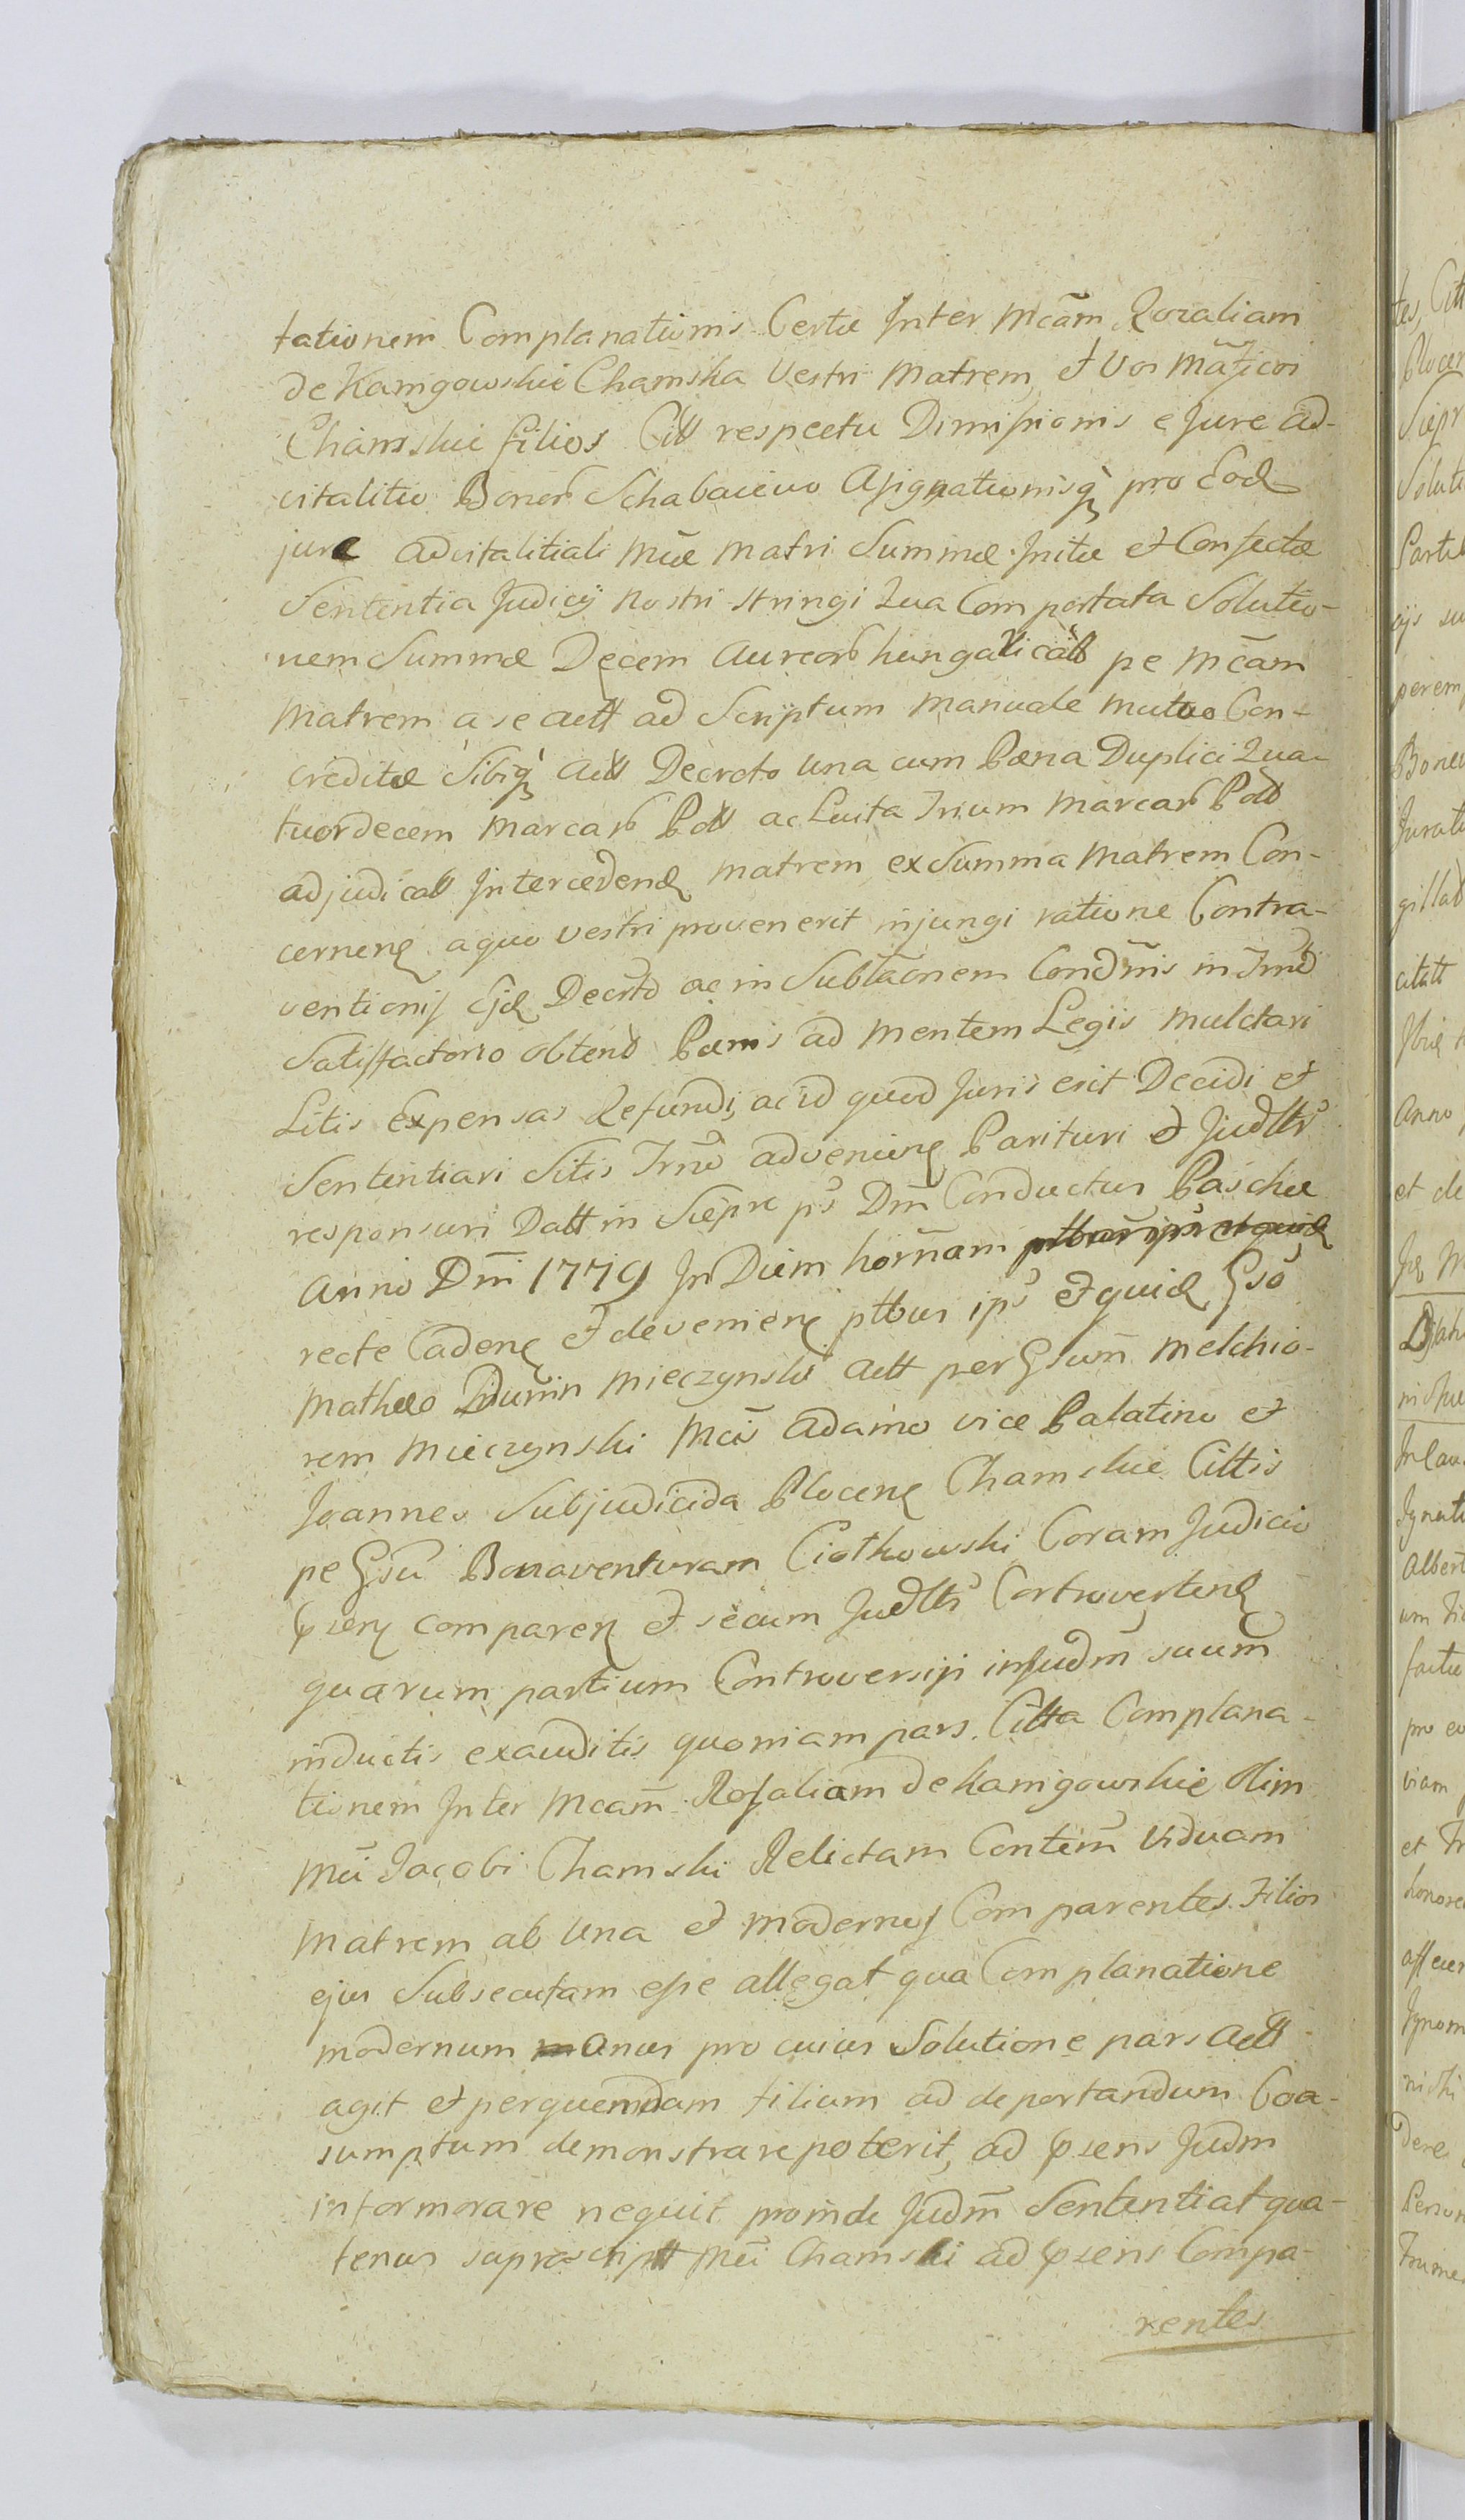 tationem Complanationis Certæ Inter Mcām Rozaliam
de Kanigowskie Chamska Vestri Matrem, et Vos Māficos
Chamskie filios Citt respectu Dimissionis e Jure ad-
vitalitio Bonor Schabaievo Assignationisq pro Eod
jure advitalitiali Mcæ Matri Summæ Initæ et Confectæ
Sententia Judicij Nostri stringi Qua Comportata Solutio-
nem Summæ Decem Aureor hungaricāl pe Mcām
Matrem a se Actt ad Scriptum Manuale mutuo Con-
creditæ Sibiq Actt Decreto una cum Pæna Duplici Qua-
tuordecem Marcar Poll ac Luita Trium Marcar Poll
adjudicatt Intercedend matrem ex Summa Matrem Con-
cernen a quo vestri provenerit injungi ratione Contra-
ventionis Ejd Decrto ac in Sublaonem Condmis in Trmo
Satisfactorio obtent Pænis ad Mentem Legis mulctari
Litis Expensas Refundi, ac id quod Juris erit Decidi et
Sententiari Sitis Trno advenien Parituri et Judltr
responsuri Datt in Sieprc ps Dm Conductus Paschæ
Anno Dm̄i 1779 In Diem hornam ptbus ips et quid
recte Caden et devenien ptbus ips et quid Gso
Mathæo Dunin Mieczynski Actt per Gsum̄ Melchio-
rem Mieczynski Mcis Adamo vice Palatino et
Joannes Subjudicida Plocen Chamskie Cittis
pe Gsū Bonaventuram Ciotkowski Coram Judicio
psen comparen et secum Judltr Controverten
quarum partium Controversiji in Judm̄ suum
inductis exauditis quoniam pars Citta Complana-
tionem Inter Mcam̄ Rosaliam de Kanigowskie Olim
Mci Jacobi Chamski Relictam Contem̄ Viduam
Matrem ab Una et modernos Comparentes Filios
ejus Subsecutam esse allegat qua Complanatione
modernum onus pro cuius Solutione pars Actt
agit et per quemdam filium ad deportandum Coa-
sumptum demonstrare poterit, ad psens Judm
informorare nequit proinde Judm̄ Sententiat qua-
tenus suprascriptt Mci Chamski ad psens Compa-
rentes